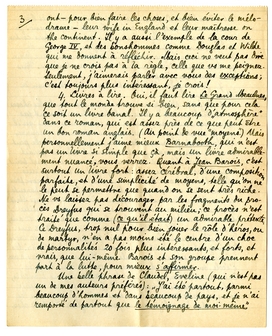 3.
ont - pour bien faire les choses, et bien éviter le mélo-
drame - leur wife en England et leur maîtresse on
the continent. Il y a aussi l'exemple de la cour de
George IV, et des bonshommes comme Douglas et Wilde
qui me donnent à réfléchir. Mais ceci ne veut pas dire
que je ne crois pas à la règle, celle que vous
Seulement, j'aimerais parler avec nous des exceptions;
c'est toujours plus intéressant, je crois!
4. Livres à lire. Oui, il faut lire Le Grand Meaulnes,
que tout le monde trouve si bien, sans que pour cela
ce soit un livre banal. Il y a beaucoup d'atmosphère
dans ce roman, qui est assez près de ce que peut être
un bon roman anglais. (Au point de vue "moyen") Mais
personnellement j'aime mieux Barnabooth, qui n'est
pas un livre si simple que ça, mais livre admirable-
ment nuancé, vous verrez. Quant à Jean Barois, c'est
surtout un livre fort assez cérébral, d'une composition
parfaite, et d'une simplicité de moyens, telle qu'on ne
le peut se permettre que quand on se sent très riche.
Ne vous laissez pas décourager par les fragments du pro-
cès Dreyfus qui se trouvent au milieu, ce procès n'est
traité que comme (ce qu'il était) un admirable prétexte
Le Dreyfus, trop nul pour bien jouer le rôle d'héros, ou
de martyr, n'en a pas moins été le centre d'un choc
de personnalités les plus intéressant, et forts, et
vrais, que lui-même. Barois et son groupe prennent
part à la lutte, pour mieux s'affirmer.
Une belle phrase de Claudel, Eveline (qui n'est pas
un de mes auteurs préférés): "J'ai été partout, parmi
beaucoup d'hommes et dans beaucoup de pays, et je n'ai
remporté de partout que le témoignage de moi-même"